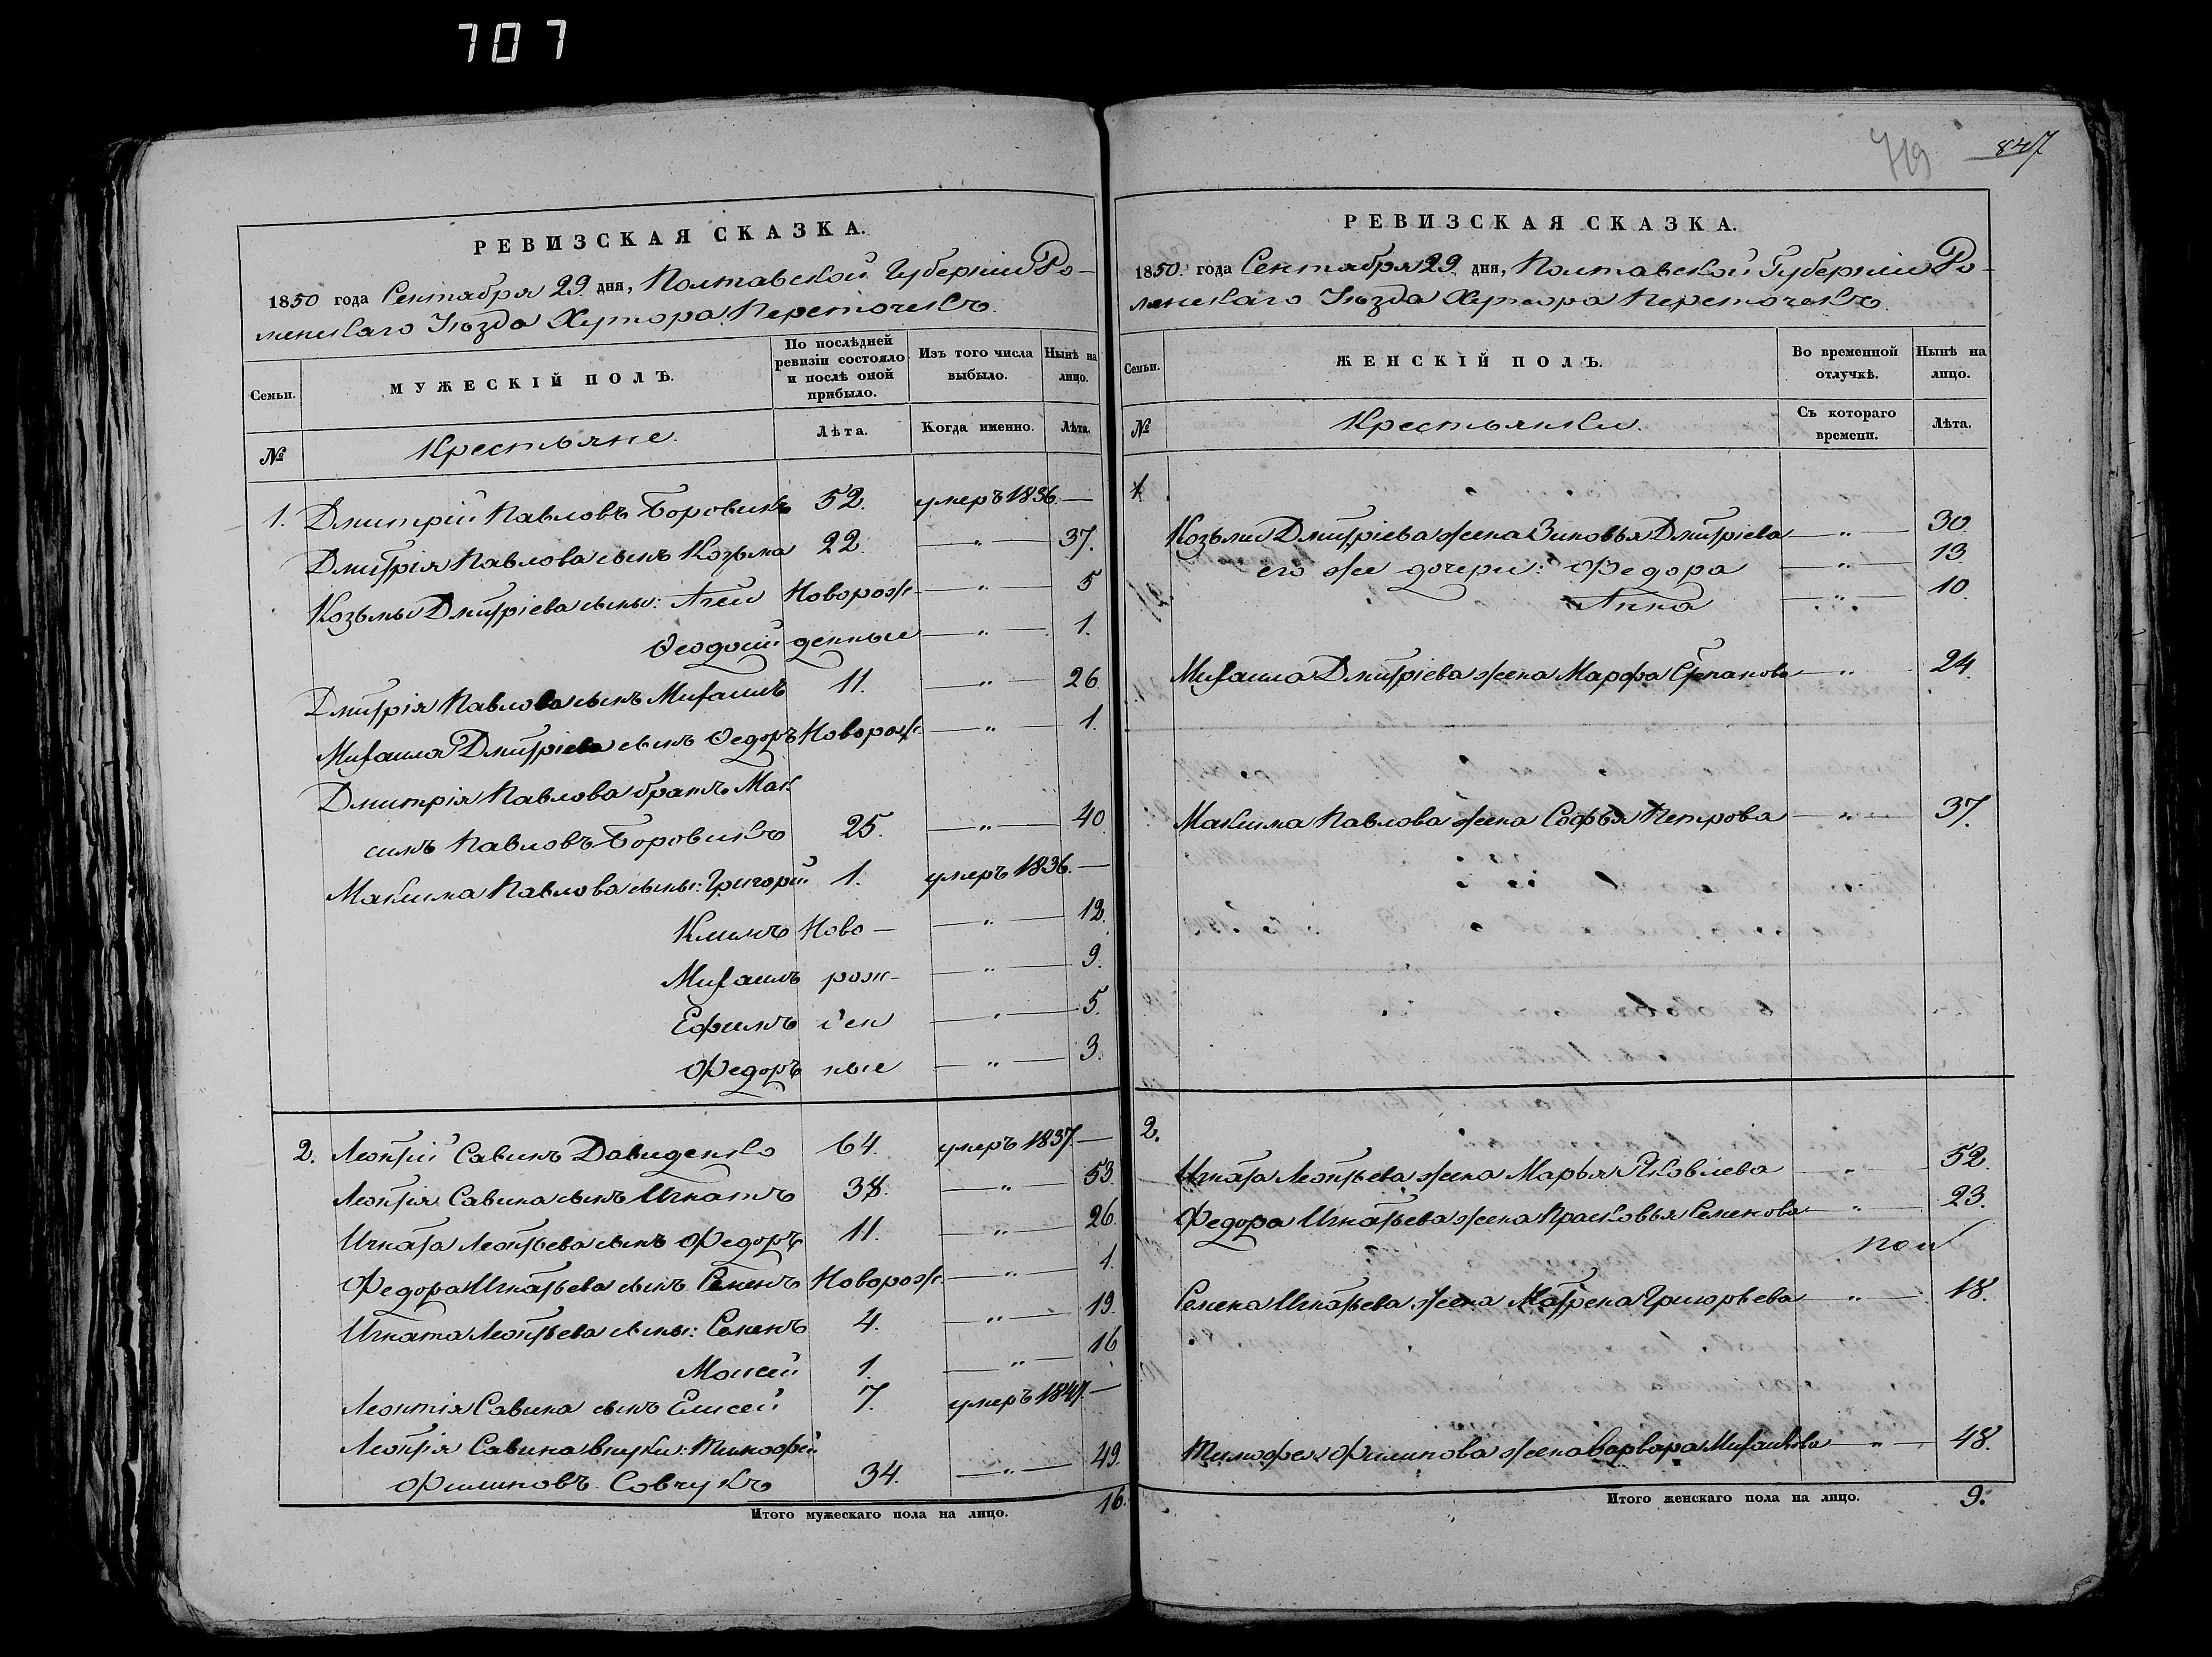 707
719
847
РЕВИЗСКАЯ СКАЗКА.
1850 года Сентября 29 дня, Полтавской Губерніи Ро-
менскаго Уѣзда Хутора Переточекъ.
Семьи.
МУЖЕСКІЙ ПОЛЪ.
По послѣдней ревизіи состояло и послѣ оной прибыло.
Изъ того числа выбыло.
Нынѣ на лицо.
№
Крестьяне.
Лѣта.
Когда именно.
Лѣта.
1. Дмитрій Павловъ Боровикъ 52. умеръ 1836. —
Дмитрія Павлова сынъ Козьма 22. — „ — 37.
Козьмы Дмитріева сыны: Агей Новорож- — „ — 5
Ѳеодосій денные — „ — 1.
Дмитрія Павлова сынъ Михаилъ 11. — „ — 26.
Михаила Дмитріева сынъ Ѳедоръ Новорож. — „ — 1.
Дмитрія Павлова братъ Мак
симъ Павловъ Боровикъ 25. — „ — 40.
Максима Павлова сыны: Григорій 1. умеръ 1836. —
Климъ Ново- — „ — 12.
Михаилъ рож- — „ — 9.
Ефимъ ден — „ — 5.
Федоръ ные — „ — 3.
2. Леонтій Савинъ Давиденко 64. умеръ 1837. —
Леонтія Савина сынъ Игнатъ 38. — „ — 53.
Игната Леонтьева сынъ Федоръ 11. — „ — 26.
Федора Игнатьева сынъ Семенъ Новорож. — „ — 1.
Игната Леонтьева сыны: Семенъ 4. — „ — 19.
Моисей 1. — „ — 16
Леонтія Савина сынъ Елисей 7. умеръ 1847. —
Леонтія Савина внуки: Тимофей
Филиповъ Савчукъ 34. — „ — 49.
Итого мужескаго пола на лицо. 16.
РЕВИЗСКАЯ СКАЗКА.
1850. года Сентября 29 дня, Полтавской Губерніи Ро-
менскаго Уѣзда Хутора Переточекъ.
Семьи.
ЖЕНСКІЙ ПОЛЪ.
Во временной отлучкѣ.
Нынѣ на лицо.
№
Крестьянки.
Съ котораго времени.
Лѣта.
1.
Козьмы Дмитріева жена Зиновья Дмитріева — „ — 30.
его же дочери: Федора — „ — 13.
Анна — „ — 10.
Михаила Дмитріева жена Марфа Степанова — „ — 24.
Максима Павлова жена Софья Петрова — „ — 37.
2.
Игната Леонтьева жена Марья Яковлева — „ — 52.
Федора Игнатьева жена Прасковья Семенова — „ — 23.
Семена Игнатьева жена Матрена Григорьева — „ — 18.
Тимофея Филипова жена Варвара Михайлова — „ — 48.
Итого женскаго пола на лицо. 9.